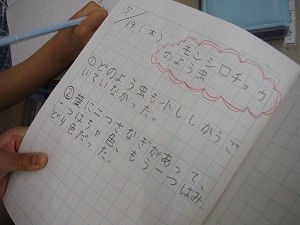 5/19(木)
モンシロチョウ
のよう虫
①どのよう虫も少ししかうご
いていなかった。
②葉に二つさなぎがあって、一
こはちゃ色、もう一つはみ
どり色だった。